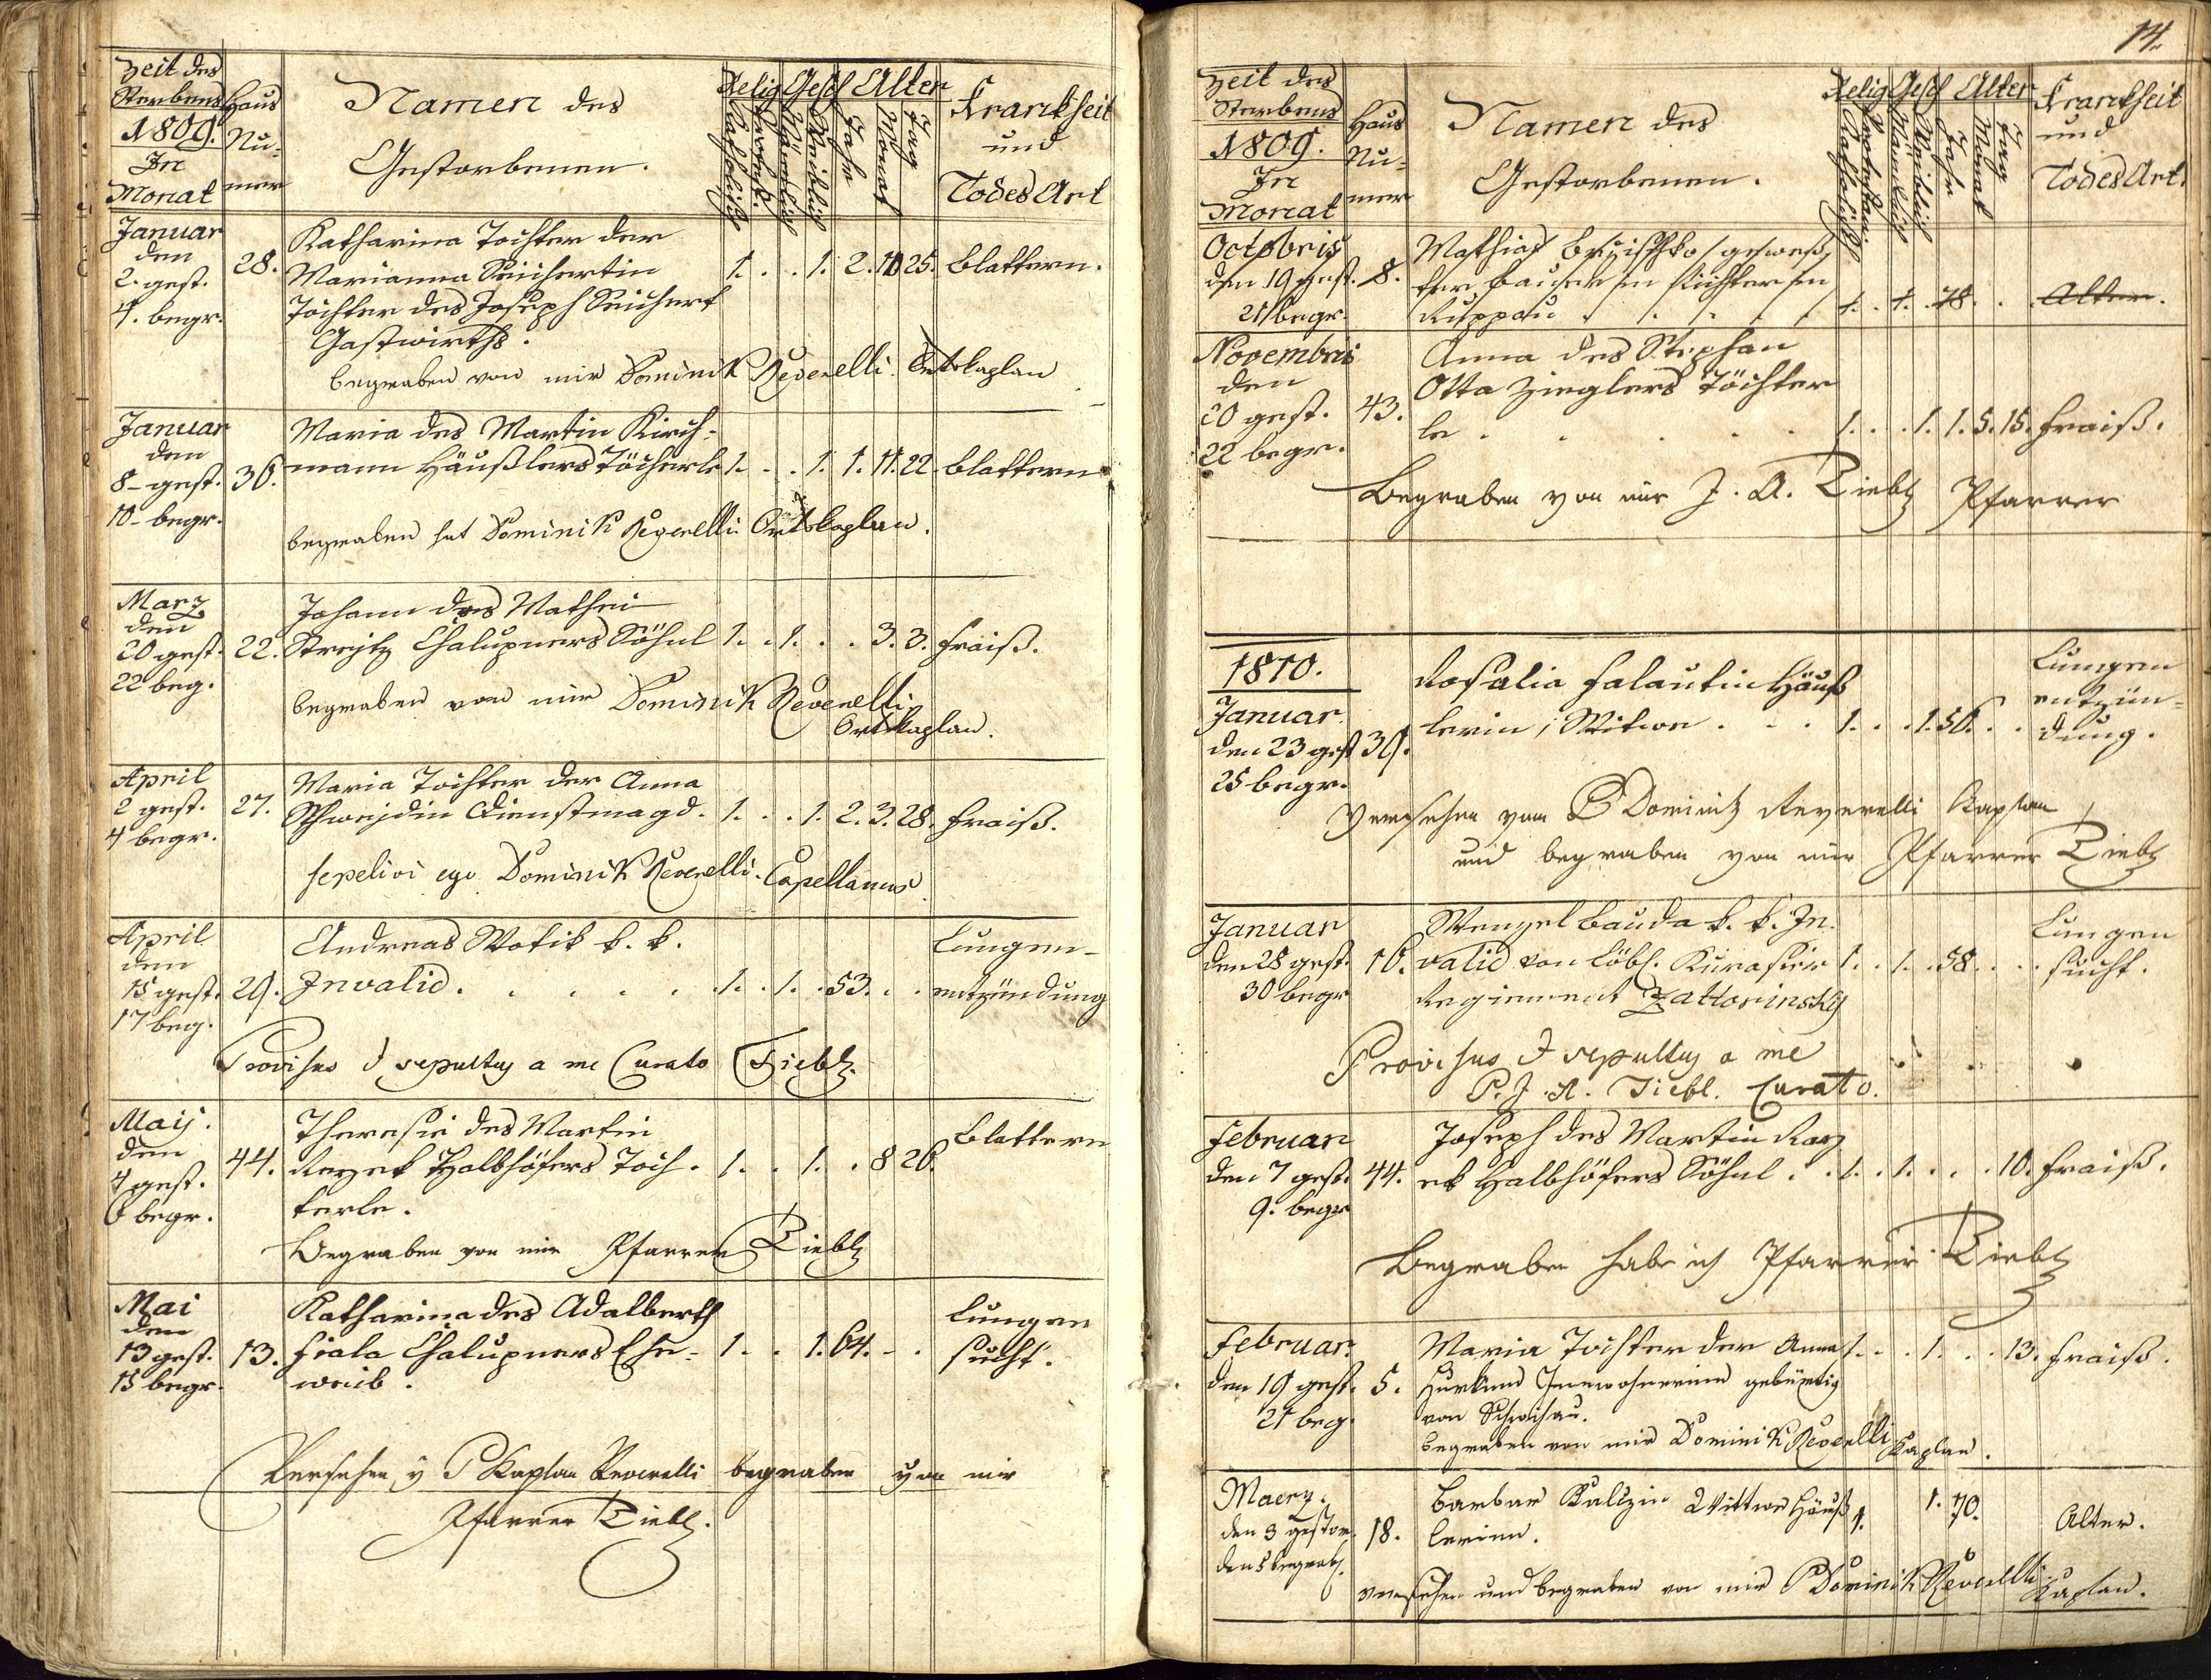 Zeit des
Sterbens
1809.
In
Monat
Haus
Nu-
mer
Namen des
Gestorbenen.
Relig
Katholisch
Protest.
Gesch
Männlich
Weiblich
Alter
Jahr
Monat
Tag
Kranckheit
und
Todes Art
Januar
den
2. gest.
4. begr.
28.
Katharina Tochter der
Marianna Seichertin
Tochter des Joseph Seichert
Gastwirths.
1. . . 1. 2. 10 25. Blattern.
begraben von mir Dominik Reverelli Ortskaplan
Januar
den
8- gest.
10- begr.
36.
Maria des Martin Kirch-
mann Häußlers Töcherle 1. . . 1. 1. 11. 22. Blattern
begraben hat Dominik Reverelli Ortskaplan.
Marz
den
20 gest.
22 beg.
22.
Johann des Mathei
Streitz Chalupners Söhnl 1. . 1. . . 3. 3. Fraiß.
begraben von mir Dominik Reverelli
Ortskaplan.
April
2 gest.
4 begr.
27.
Maria Tochter der Anna
Schwejdin Dienstmagd. 1. . . 1. 2. 3. 28. Fraiß.
sepelivi ego Dominik Reverelli Capellanus
April
den
15 gest.
17 beg.
29.
Andreas Wotik k. k.
Invalid . . . . . 1. . 1. . 53. . .
Lungen-
entzündung
Provisus & sepultus a me Curato Tiebl.
Maij.
den
4 gest.
6 begr.
44.
Theresie des Martin
Razek Halbhöfers Töch-
terle.
1. . 1. . 8 26.
Blattern
Begraben von mir Pfarrer Tiebl
Mai
den
13 gest.
15 begr.
13.
Katharina des Adalberth
Fiala Chalupners Ehe-
weib.
1. . . 1. 64. - .
Lungen
sucht.
Versehen v P Kaplan Reverelli begraben von mir
Pfarrer Tiebl.
14.
Zeit des
Sterbens
1809.
In
Monat
Haus
Nu-
mer
Namen des
Gestorbenen.
Relig
Katholisch
Gesch
Männlich
Weiblich
Alter
Jahr
Monat
Tag
Kranckheit
und
Todes Art.
Octobris
den 19 gest.
21 begr.
8.
Mathias
Bauer
Richter in
Ruppau . . . . .
1. . 1. . 78. . . Alter.
Novembris
den
20 gest.
22 begr.
43.
Anna des Stephan
Otta Zieglers Töchter
le . . . . .
1. . . 1. 1. 5. 15. Fraiß.
Begraben von mir J. A. Tiebl Pfarrer
1810.
Januar
den 23 gest
25 begr.
39.
Rosalia Falautin Häuß
lerin, Witwe . . . 1. . . 1. 56. . .
Lungen
entzün-
dung.
Versehen vom P Dominik Reverelli Kaplan
und begraben von mir Pfarrer Tiebl
Januar
den 28 gest.
30 begr
16.
Wenzel Bauda k. k. In-
valid von Löbl. Kurasier
Regiement Zattorinsky
1. . 1. . 58. . . .
Lungen
sucht.
Provisus & sepultus a me
P. J. A. Tiebl. Curato.
Februar
den 7 gest.
9. begr
44.
Joseph des Martin Raz
ek Halbhöfers Söhnl . . 1. . 1. . . . 10. Fraiß.
Begraben habe ich Pfarrer Tiebl
Februar.
den 19 gest.
21 beg.
5.
Maria Tochter der Anna 1. . . 1. . . 13. Fraiß.
Innwohnerinn gebürtig
von Schwihau.
begraben von mir Dominik Reverelli Kaplan.
Maerz.
den 3 gestor.
den 5 begrab.
18.
Barbar Kalizin Wittwe Häuß
lerinn.
1. 1. 70. Alter.
versehen und begraben von mir P Dominik Reverelli
Kaplan.